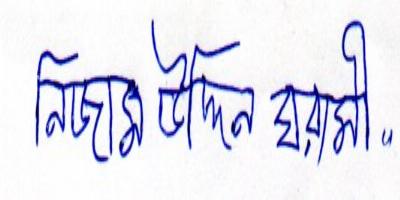 নিজাম উদ্দিন ঘরামী..